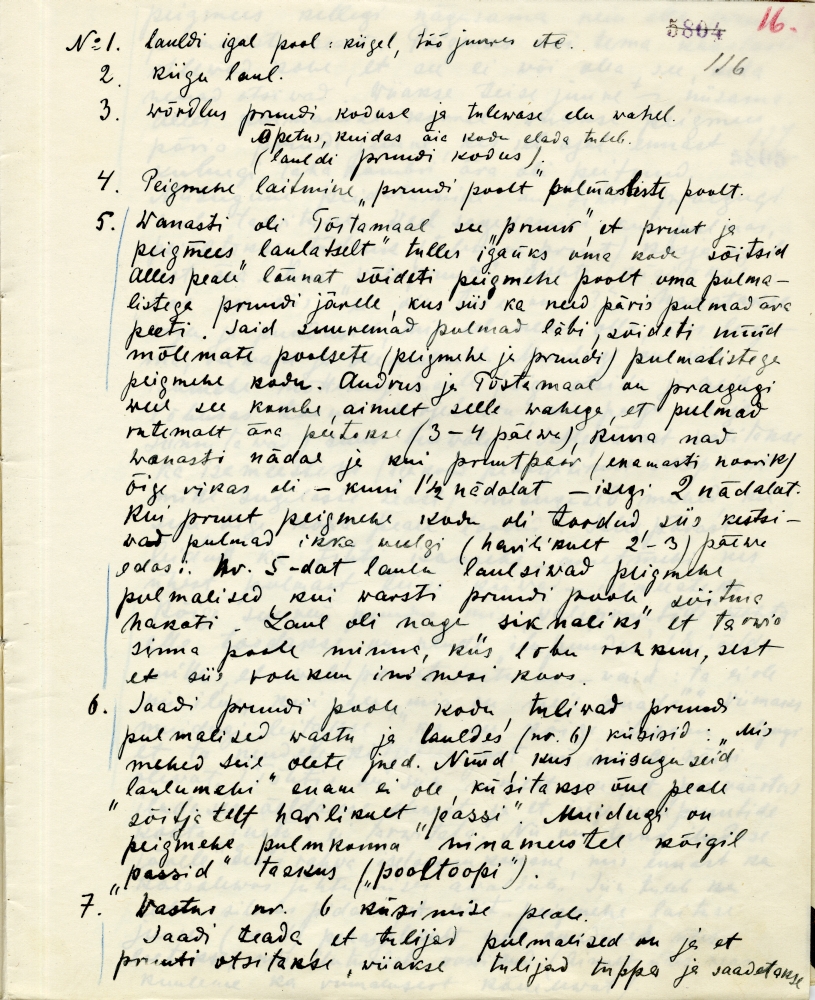 5804 16.
116
№ 1. lauldi igal pool: kiigel, töö juures etc.
2. Kiigu laul.
3. Wõrdlus pruudi koduse ja tulewase elu wahel.
Õpetus, kuidas äia kodu elada tuleb.
(lauldi pruudi kodus).
4. Peigmehe laitmine „pruudi poolt" pulmaliste poolt.
5. Wanasti oli Tõstamaal see „pruuk", et pruut ja
peigmees „laulatselt" tulles igaüks oma kodu sõitsid
Alles peale lõunat sõideti peigmehe poolt oma pulma-
listega pruudi järele, kus siis ka need päris pulmad ära
peeti. Said suuremad pulmad läbi, sõideti nüüd
mõlemate poolsete (peigmehe ja pruudi) pulmalistega
peigmehe kodu. Audrus ja Tõstamaal on praegugi
weel see kombe, ainult selle wahega, et pulmad
rutemalt ära peetakse (3–4 päewa), kuna nad
wanasti nädal ja kui pruutpaar (enamasti noorik)
õige rikas oli – kuni 1½ nädalat – isegi 2 nädalat.
Kui pruut peigmehe kodu oli toodud, siis kestsi-
wad pulmad ikka weelgi (harilikult 2–3) päewa
edasi. Nr. 5-dat laulu laulsiwad peigmehe
pulmalised kui warsti pruudi poole sõitma
hakati. Laul oli nagu „siknaliks" et tarwis
sinna poole minna, kus lõbu rohkem, sest
et siis rohkem inimesi koos.
6. Saadi pruudi poole kodu, tuliwad pruudi
pulmalised wastu ja lauldes (nr. 6) küsisid: „Mis
mehed seie olete jned. Nüüd, kus niisuguseid
„laulumehi" enam ei ole, küsitakse õue peale
sõitjatelt harilikult „passi". Muidugi on
peigmehe pulmkonna ninameestel kõigil
„passid" taskus („pooltoopi").
7. Wastus nr. 6 küsimise peale.
Saadi teada, et tulijad pulmalised on ja et
pruuti otsitakse, wiiakse tulijad tuppa ja saadetakse